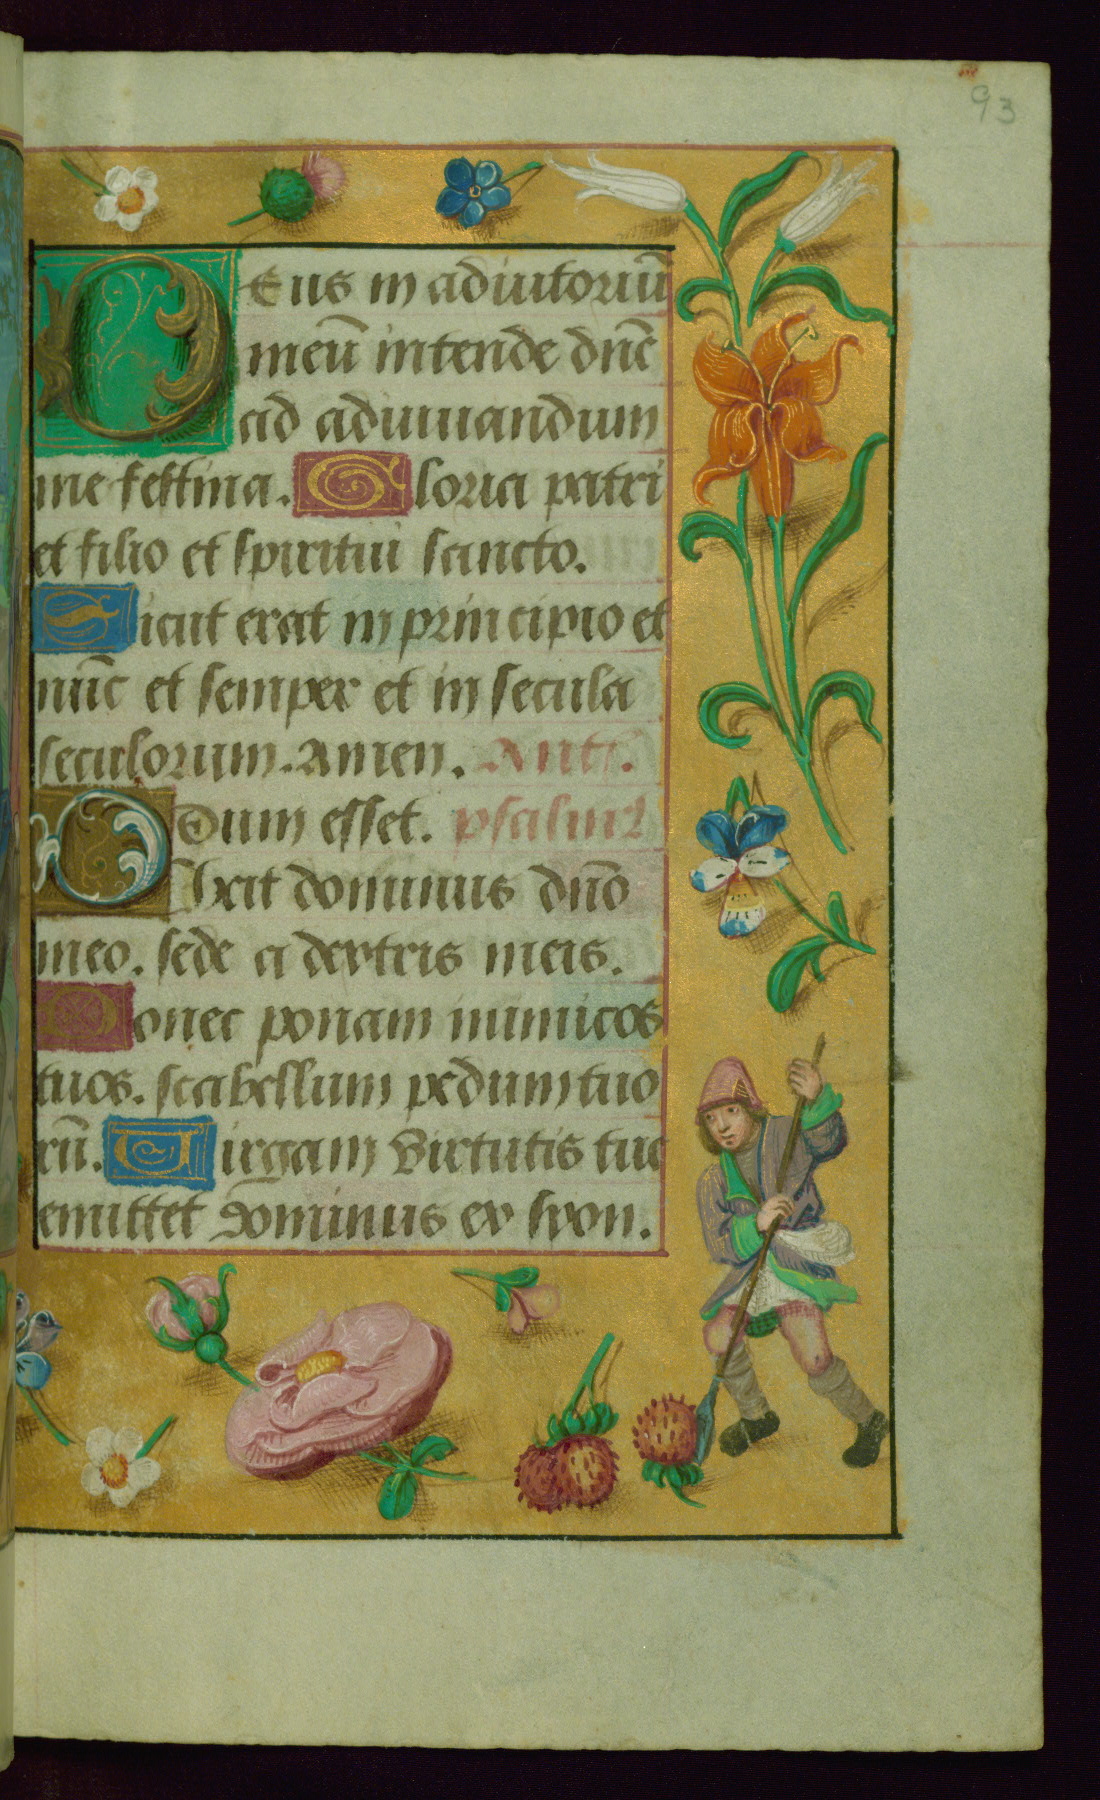 93
Deus in adiutoriū
meū intende dnē
ad adiuuandum
me festina. Gloria patri
et filio et spiritui sancto.
Sicut erat in principio et
nūc et semper et in secula
seculorum. Amen. Ant.
Dum esset. psalmus
Dixit dominus dn̄o
meo. sede a dextris meis.
Donec ponam inimicos
tuos. scabellum pedum tuo
rū. Virgam virtutis tue
emittet dominus ex syon.